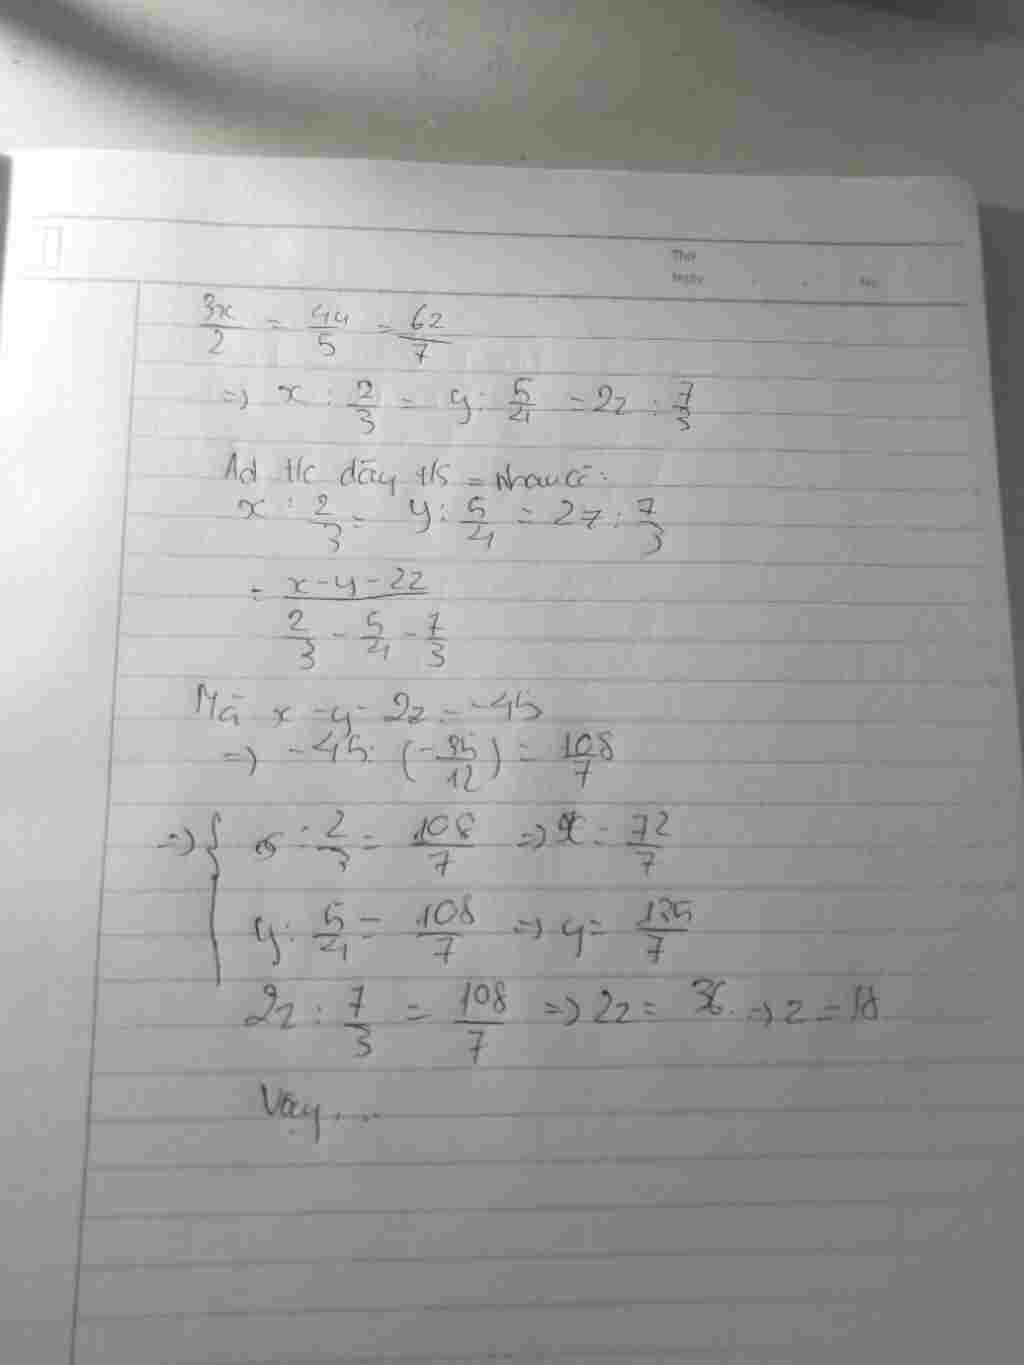 Thứ
Ngày . . No.
3x/2 = 4y/5 = 6z/7
=> x : 2/3 = y : 5/4 = 2z : 7/3
Ad t/c dãy t/s = nhau có:
x : 2/3 = y : 5/4 = 2z : 7/3
= (x - y - 2z)/(2/3 - 5/4 - 7/3)
Mà x - y - 2z = -45
=> -45 : (-35/12) = 108/7
=> { x : 2/3 = 108/7 => x = 72/7
y : 5/4 = 108/7 => y = 135/7
2z : 7/3 = 108/7 => 2z = 36 => z = 18
Vậy ....